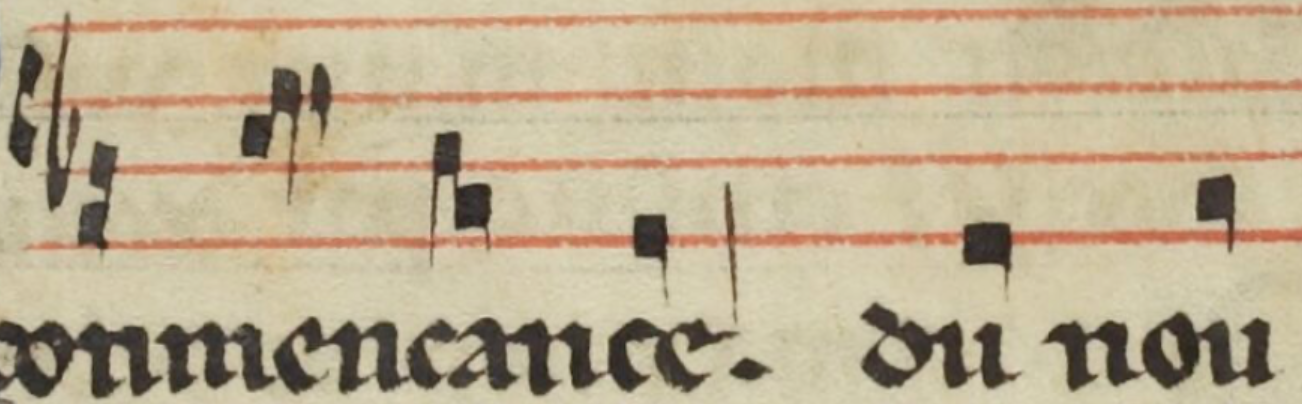 conmencance. du nou